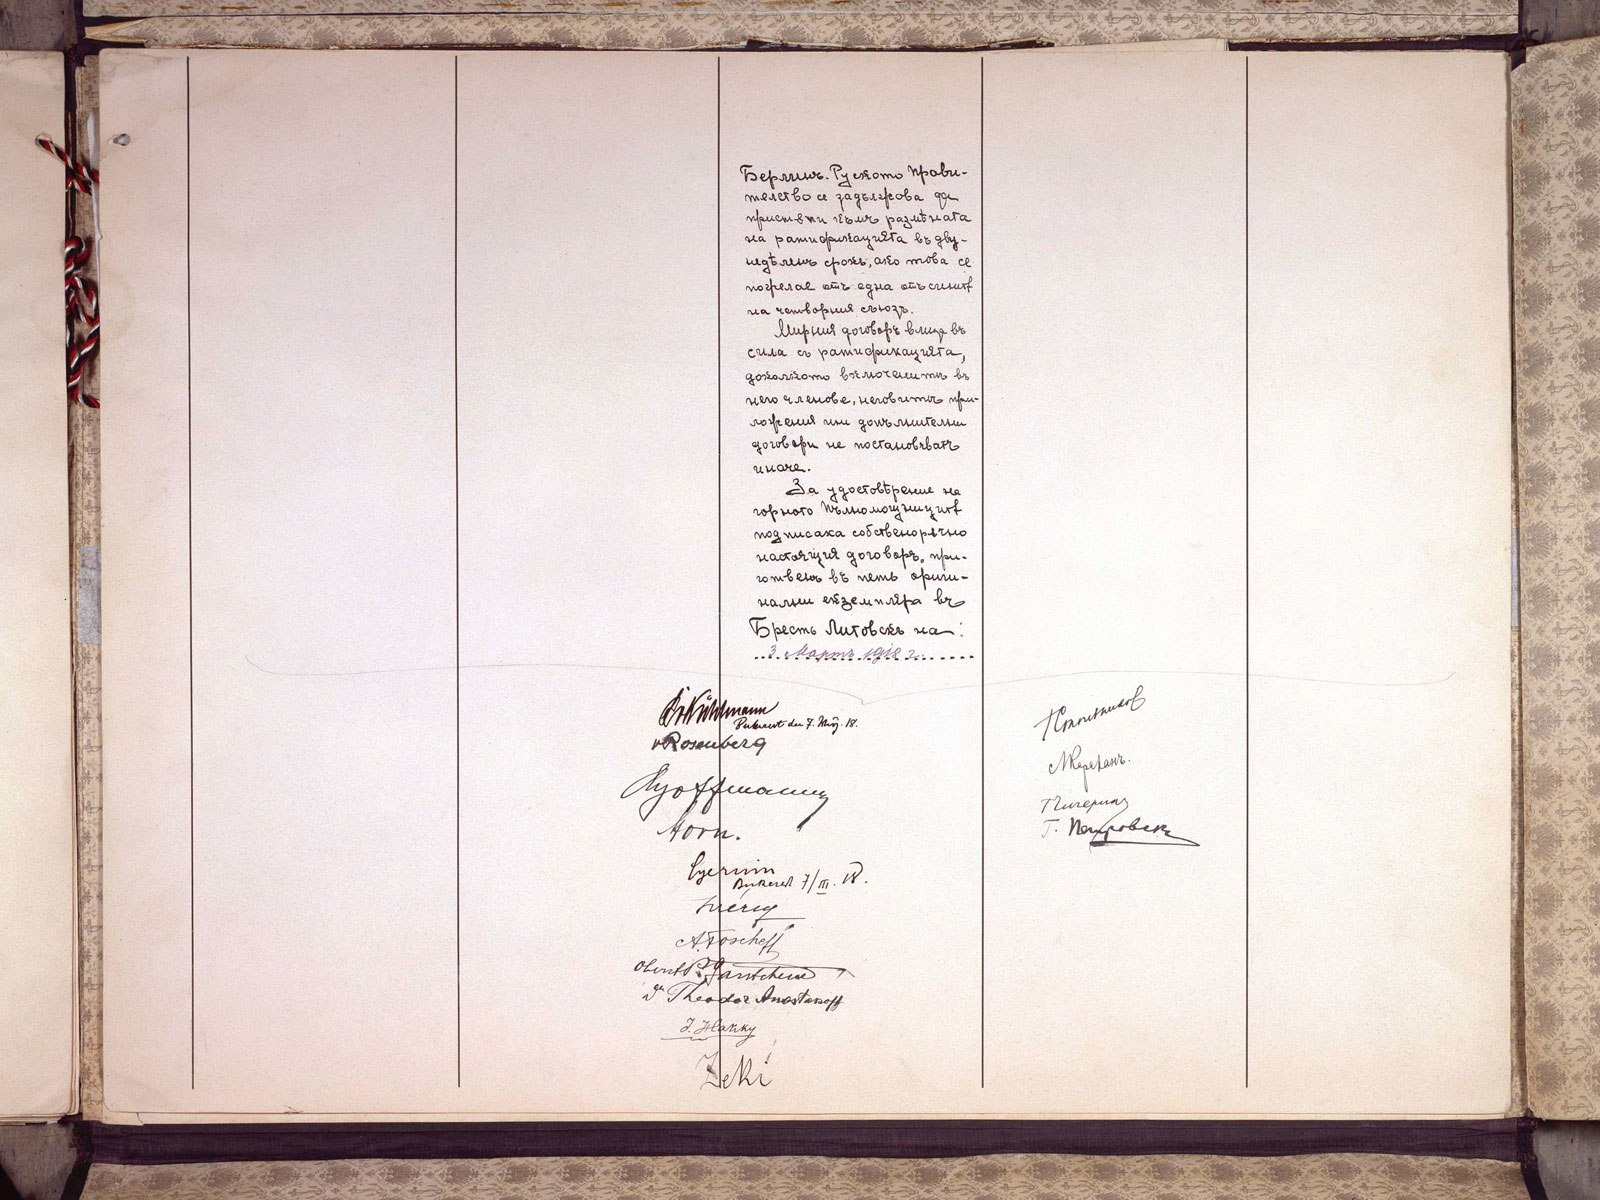 Берлинъ. Руското Прави-
телство се задължава да
пристѫпи къмъ размѣната
на ратификацията въ дву-
недѣленъ срокъ, ако това се
пожелае отъ една отъ силитѣ
на четворния съюзъ.
Мирния договоръ влиза въ
сила съ ратификацията,
доколкото включенитѣ въ
него членове, неговитѣ при-
ложения или допълнителни
договори не постановяватъ
иначе.
За удостовѣрение на
горното пълномощницитѣ
подписаха собственорѫчно
настоящия договоръ, при-
готвенъ въ петь ориги-
нални екземпляра въ
Брестъ Литовскъ на:
3 Мартъ 1918 г.
Kühlmann
Bukarest den 7. März 18.
v Rosenberg
Hoffmann
Horn.
Czernin
Bukarest 7/III. 18.
A. Toscheff
Oberst P. Gantchew
Dr Theodor Anastasoff
J. Hakky
Zeki
Сокольников
Л Караханъ.
Г Чичерин
Г. Петровский